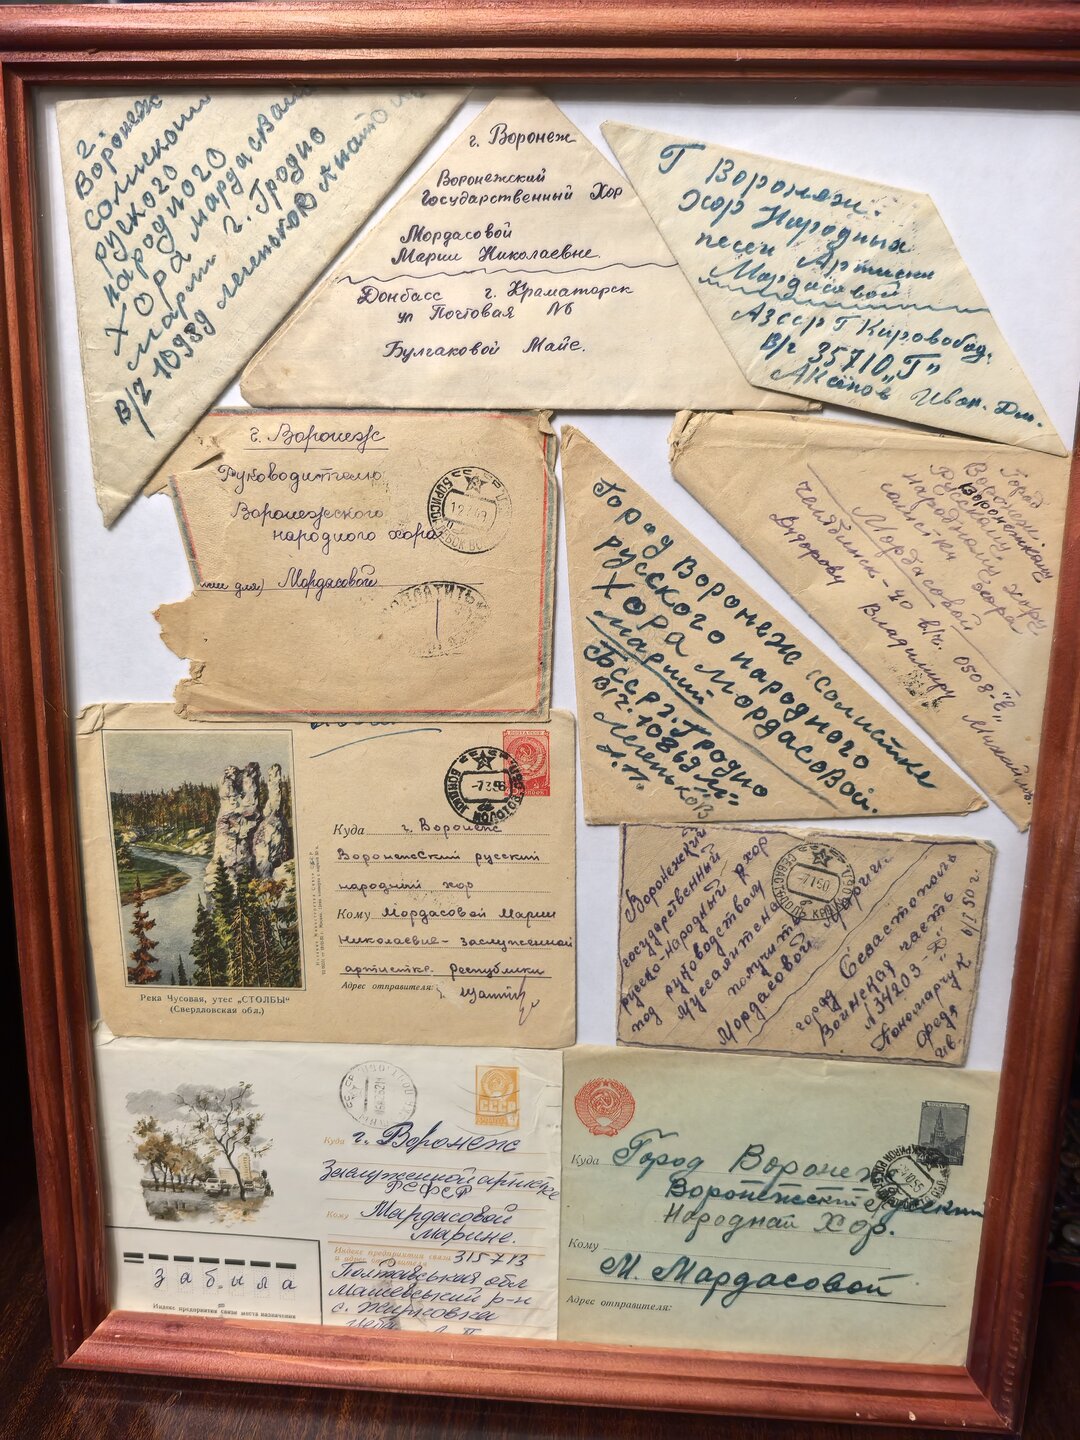 г.
Воронеж
солисткои
руского
народного
Хора Мардасвай
Марии г. Гродно
в/ч 10989 Легеньков
г. Воронеж
Воронежский
Государственный Хор
Мордасовой
Марии Николаевне
Донбасс г. Краматорск
ул Почтовая №6
Булгаковой Майе.
Г Воронеж.
Хор Народных
песен Артистки
Мордасовой
АзССР Г Кировобад.
В/ч 35710 „Г"
Аксёнов Иван. Дм.
г. Воронеж
Руководителю
Воронежского
народного хора
для) Мордасовой
ДОПЛАТИТЬ
Город Воронеж (Солистке
русского народного
Хора Мордасовой.
Марии
БССР г. Гродно
В/ч. 10
Легеньков
Город
Воронеж.
Воронежскому
Русскому
народному хору
солистки хора
Мордасовой
Челябинск-40 в/ч. 0508-„Е"
Дудорову Владимиру Михайл.
ПОЧТА СССР
-7 3 56
Куда г. Воронеж
Воронежский русский
народный хор
Кому Мордасовой Марии
Николаевне - Заслуженной
артистке республики
Адрес отправителя:
Река Чусовая, утес „СТОЛБЫ"
(Свердловская обл.)
Воронежский
государственный
русско-народный хор
под руководством
получить
Мордасовой Марии
СЕВАСТОПОЛЬ
-7 1 50
город Севастополь
Воинская часть
№34203-„
Пономарчук
Федя
Ив.
4/I 50 г.
СССР
Куда г. Воронеж
Заслуженной артистке
РСФСР
Кому Мардасовой
Марине.
Индекс предприятия связи 315713
и адрес отправителя
Полтавськая обл
Машевський р-н
с.
забила
Индекс предприятия связи места назначения
Куда Город Воронеж
Воронежский Русский
Народнай Хор.
Кому
М. Мардасовой
Адрес отправителя: